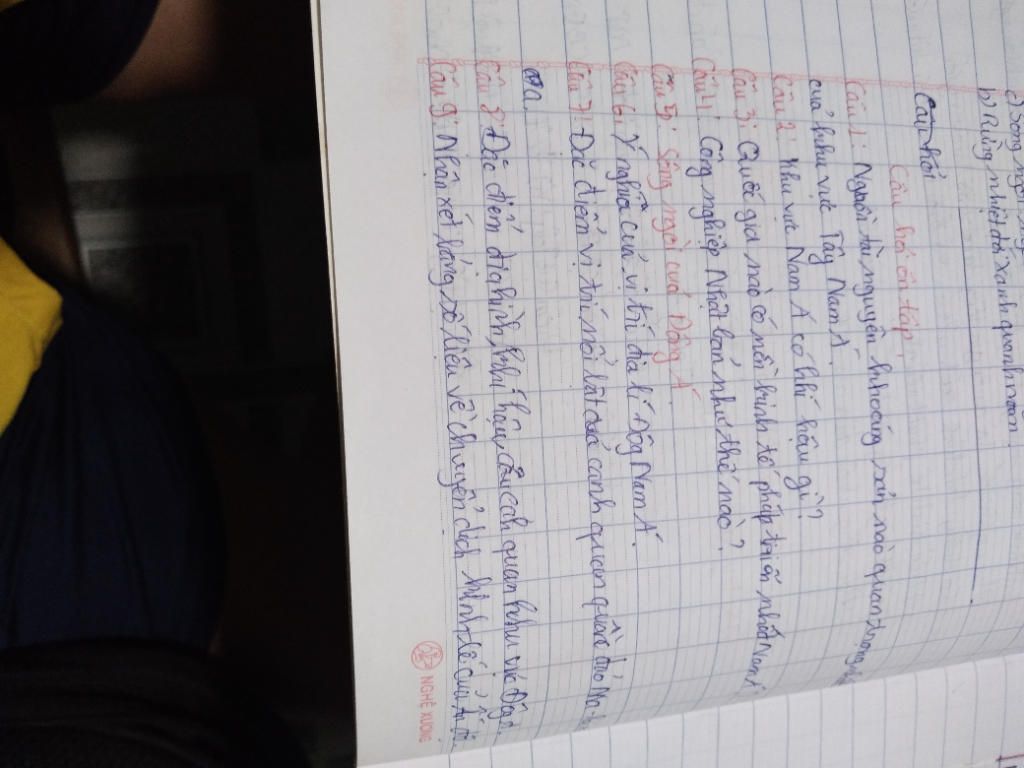 c) Sông ngòi
b) Rừng nhiệt đới xanh quanh năm
Câu hỏi
Câu hỏi ôn tập:
Câu 1: Nguồn tài nguyên khoáng sản nào quan trọng
của khu vực Tây Nam Á.
Câu 2: Khu vực Nam Á có khí hậu gì?
Câu 3: Quốc gia nào có nền kinh tế pháp triển nhất Nam Á
Câu 4: Công nghiệp Nhật bản như thế nào?
Câu 5: Sông ngòi của Đông Á
Câu 6: Ý nghĩa của vị trí địa lí Đông Nam Á.
Câu 7: Đặc điểm vị trí nổi bài của cảnh quan quần đảo
Câu 8: Đặc điểm địa hình, khí hậu, cảnh quan khu vực Đông
Câu 9: Nhận xét bảng số liệu về chuyển dịch kinh tế của
NGHÊ XƯƠNG